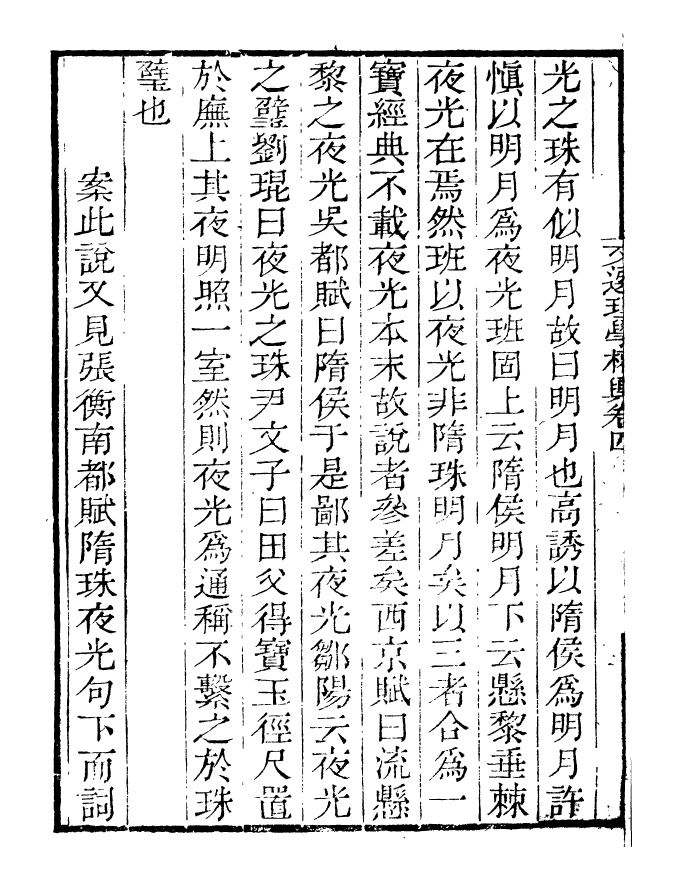 文選理學權輿卷四
光之珠有似明月故曰明月也高誘以隋侯爲明月許
慎以明月爲夜光班固上云隋侯明月下云懸黎垂棘
夜光在焉然班以夜光非隋珠明月矣以三者合爲一
寶經典不載夜光本末故說者參差矣西京賦曰流懸
黎之夜光吳都賦曰隋侯于是鄙其夜光鄒陽云夜光
之璧劉琨曰夜光之珠尹文子曰田父得寶玉徑尺置
於廡上其夜明照一室然則夜光爲通稱不繫之於珠
璧也
案此說又見張衡南都賦隋珠夜光句下而詞